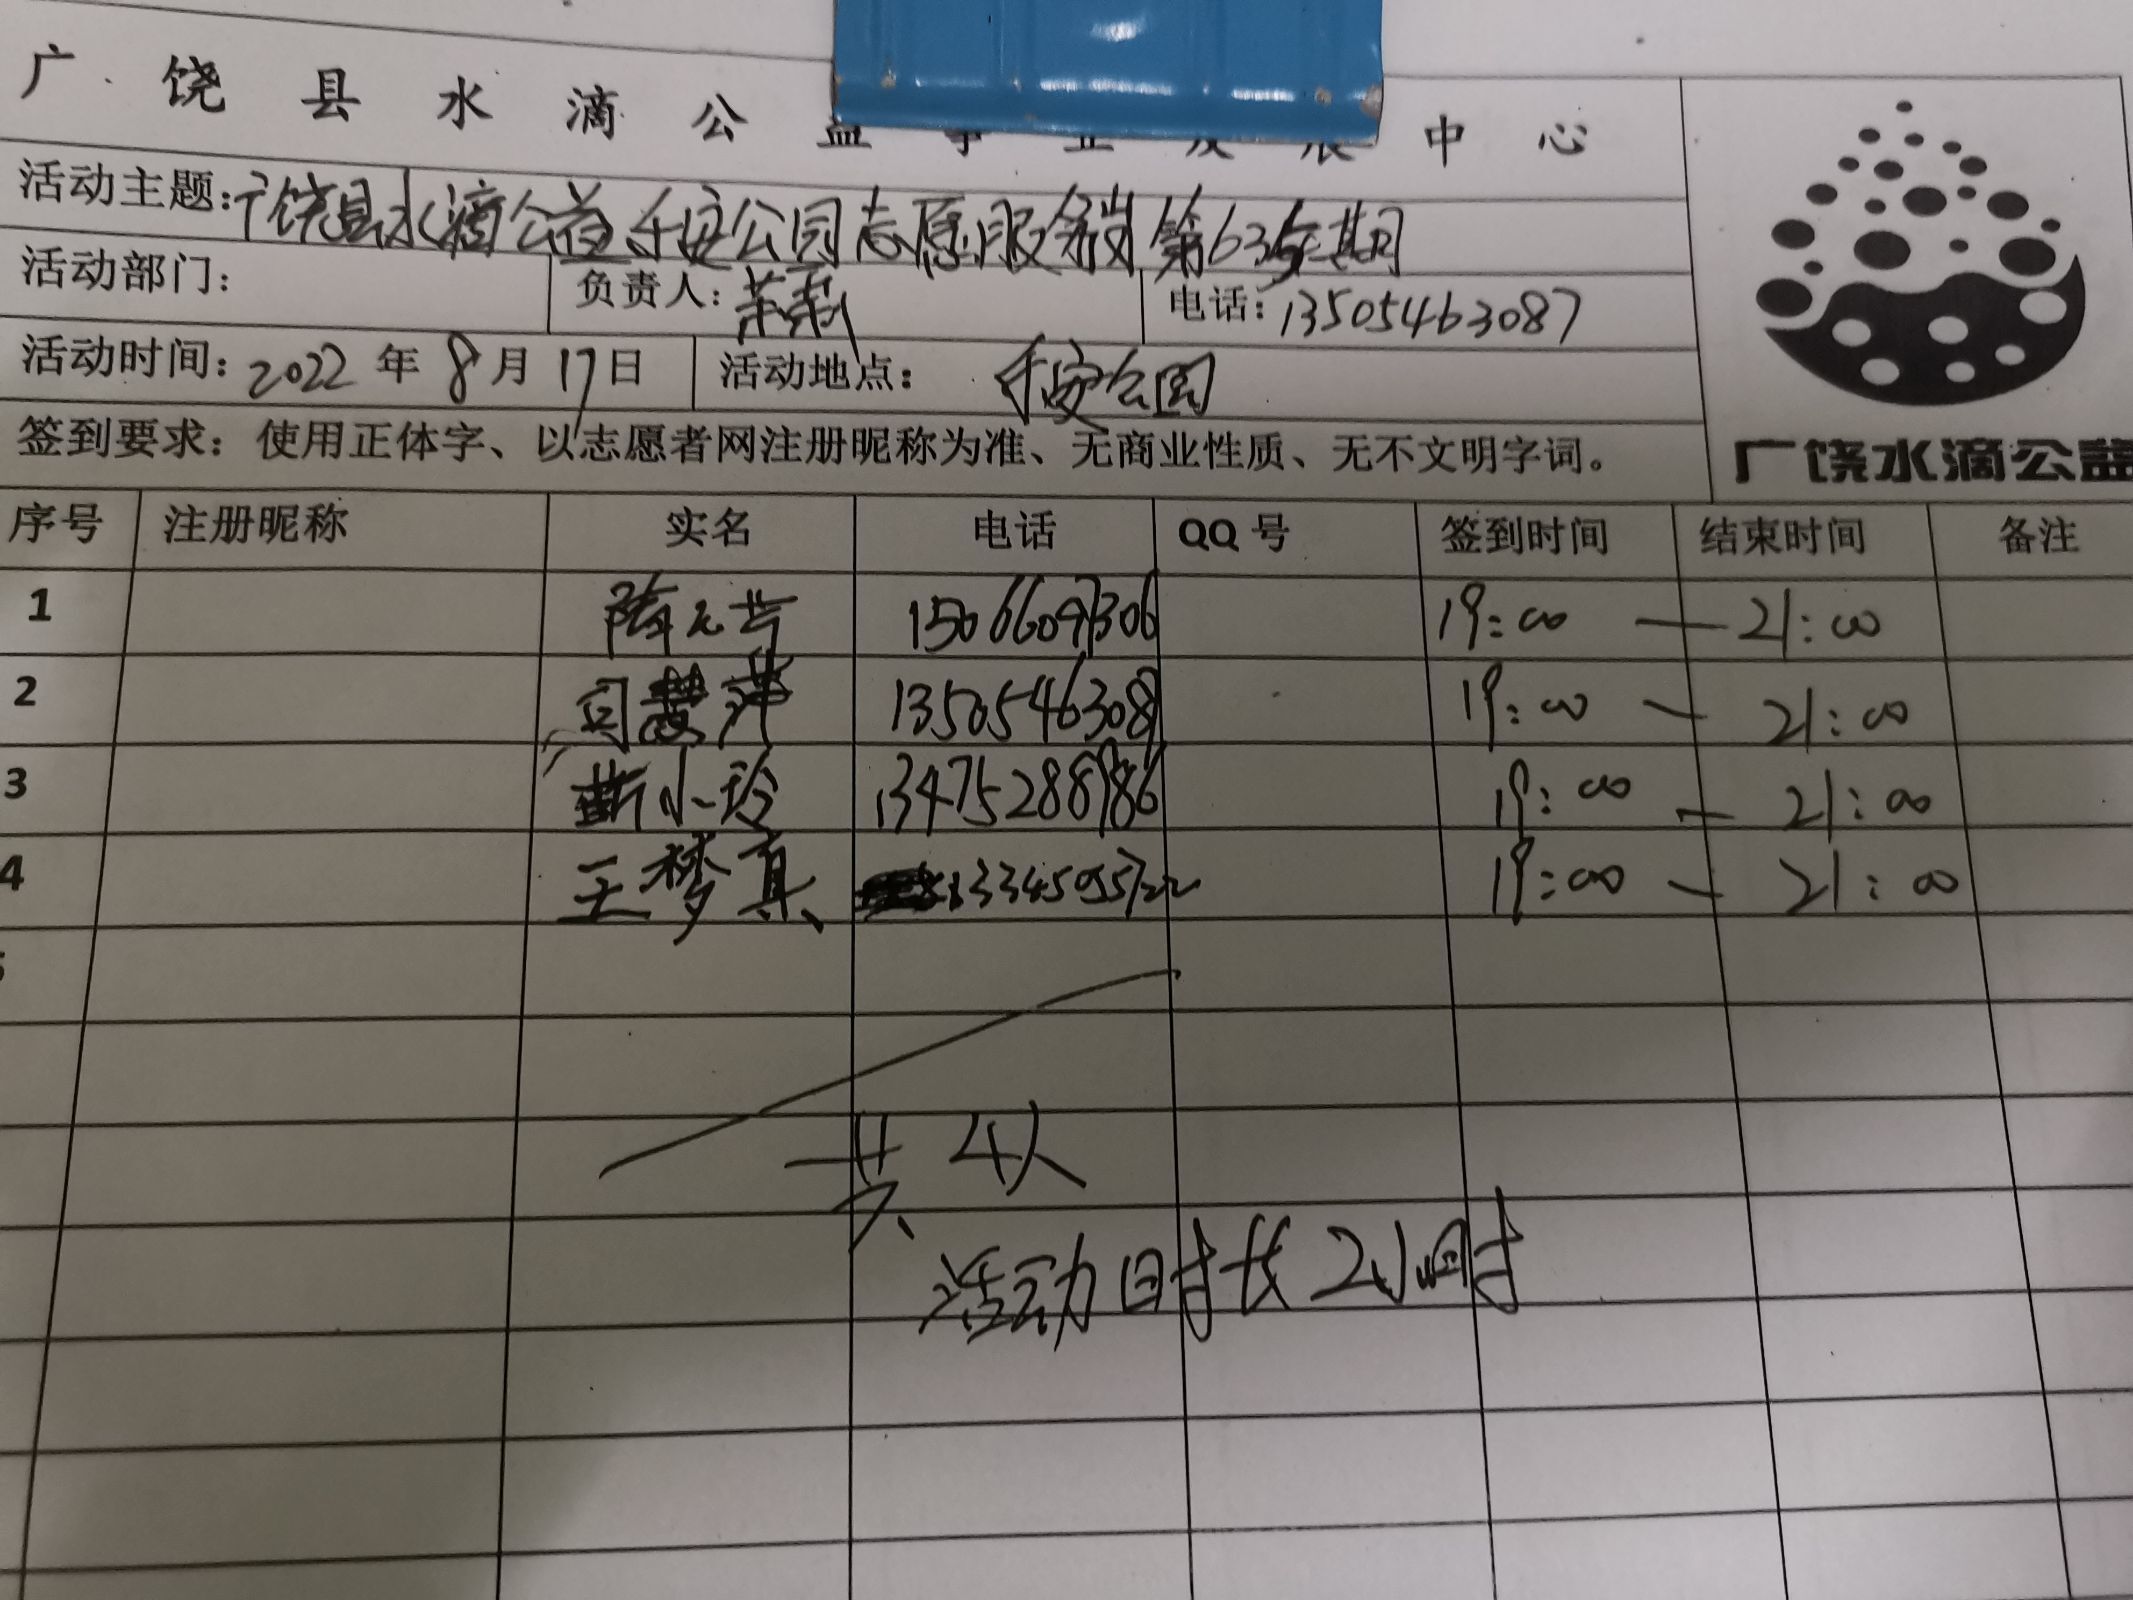 广饶县水滴公益事业发展中心
活动主题:广饶县水滴公益乐安公园志愿服务岗第635期
活动部门: 负责人:茉莉 电话:13505463087
活动时间:2022年8月17日 活动地点:乐安公园
签到要求:使用正体字、以志愿者网注册昵称为准、无商业性质、无不文明字词。
广饶水滴公益
序号 注册昵称 实名 电话 QQ号 签到时间 结束时间 备注
1 15066097306 19:00 — 21:00
2 1350546308 19:00 — 21:00
3 靳小玲 13475288986 19:00 — 21:00
4 王梦真 13345055722 19:00 — 21:00
5
共4人
活动时长2小时